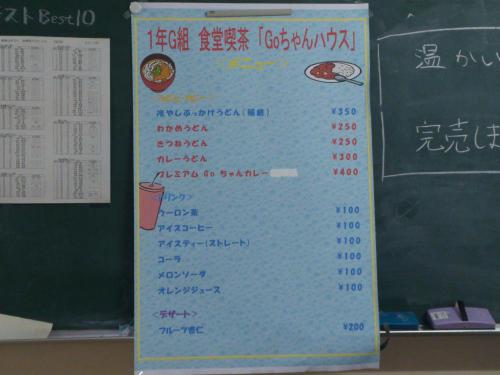 テストBest10
1年G組 食堂喫茶 「Goちゃんハウス」
メニュー
冷やしぶっかけうどん(稲庭) ¥350
わかめうどん ¥250
きつねうどん ¥250
カレーうどん ¥300
プレミアム Go ちゃんカレー ¥400
ドリンク>
ウーロン茶 ¥100
アイスコーヒー ¥100
アイスティー(ストレート) ¥100
コーラ ¥100
メロンソーダ ¥100
オレンジジュース ¥100
<デザート>
フルーツ杏仁 ¥200
温かい
完売しま